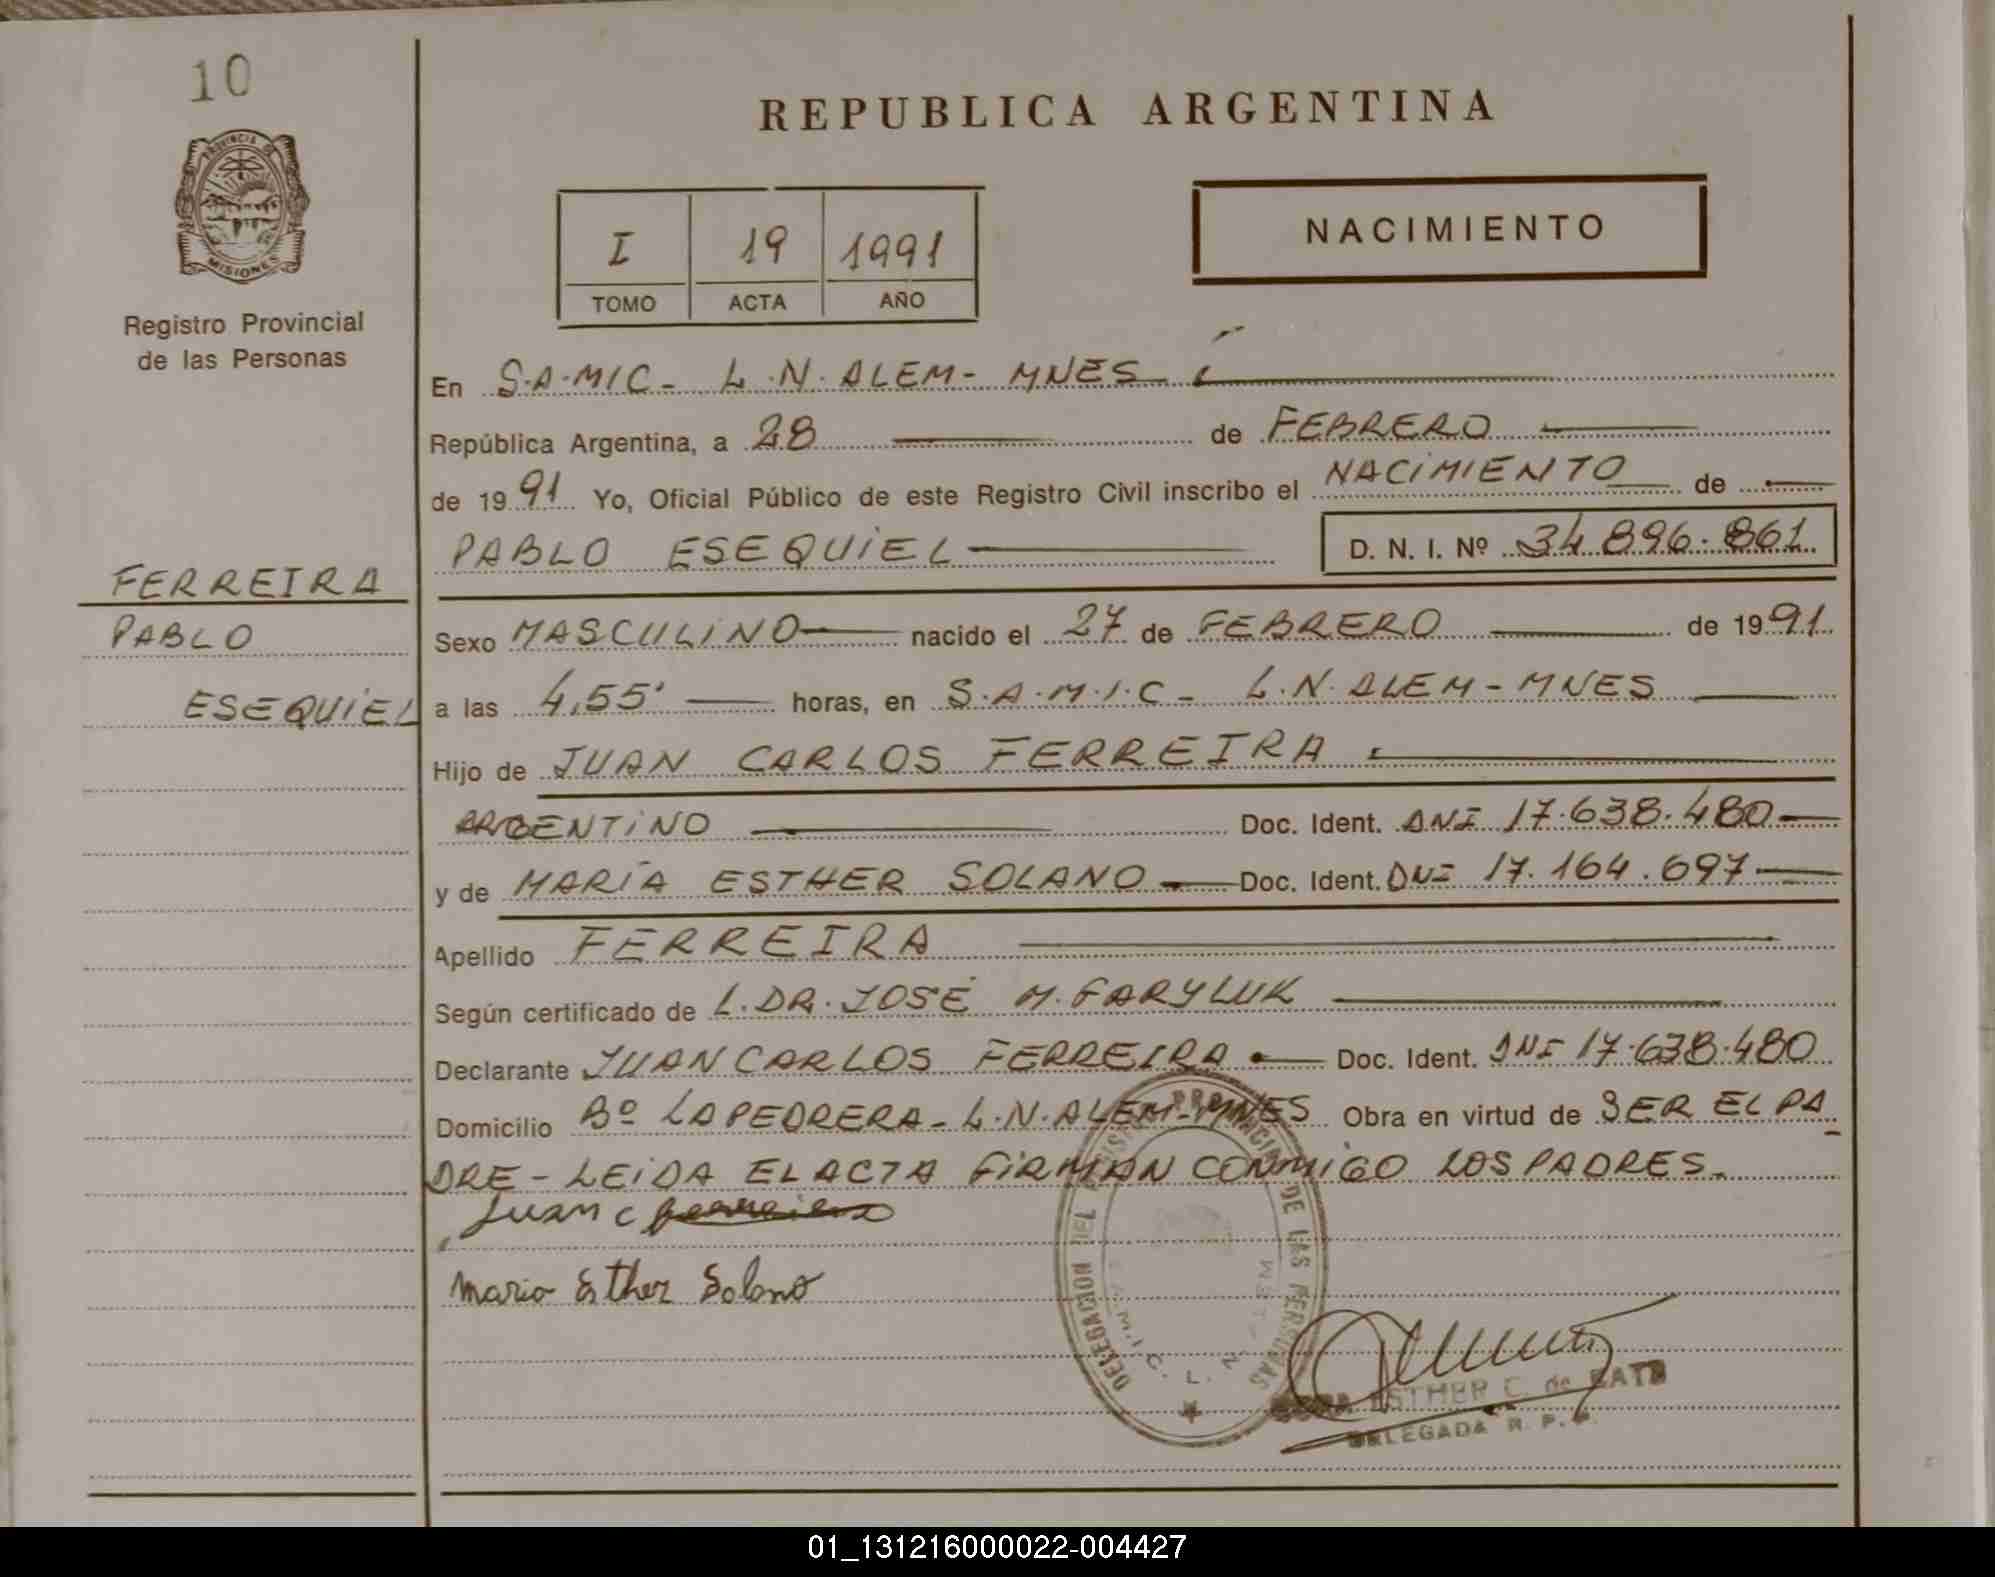 10
REPUBLICA ARGENTINA
PROVINCIA DE
MISIONES
Registro Provincial
de las Personas
I 19 1991
TOMO ACTA AÑO
NACIMIENTO
En S.A.MIC- L.N. ALEM- MNES
República Argentina, a 28 de FEBRERO
de 1991 Yo, Oficial Público de este Registro Civil inscribo el NACIMIENTO de
PABLO ESEQUIEL D. N. I. Nº 34.896.861
FERREIRA
PABLO
ESEQUIEL
Sexo MASCULINO nacido el 27 de FEBRERO de 1991
a las 4,55' horas, en S.A.M.I.C- L.N. ALEM - MNES
Hijo de JUAN CARLOS FERREIRA
ARGENTINO Doc. Ident. DNI 17.638.480
y de MARÍA ESTHER SOLANO Doc. Ident. DNI 17.164.697
Apellido FERREIRA
Según certificado de L. DR. JOSÉ M. FARYLUK
Declarante JUAN CARLOS FERREIRA Doc. Ident. DNI 17.638.480
Domicilio Bº LA PEDRERA - L.N. ALEM - MNES Obra en virtud de SER EL PA
DRE - LEIDA EL ACTA FIRMAN CONMIGO LOS PADRES.
Juan C Ferreira
Maria Esther Solano
DELEGACION DEL REGISTRO PROVINCIAL DE LAS PERSONAS
S.A.M.I.C. L. N.
ESTHER C. de
DELEGADA R. P. P.
01_131216000022-004427